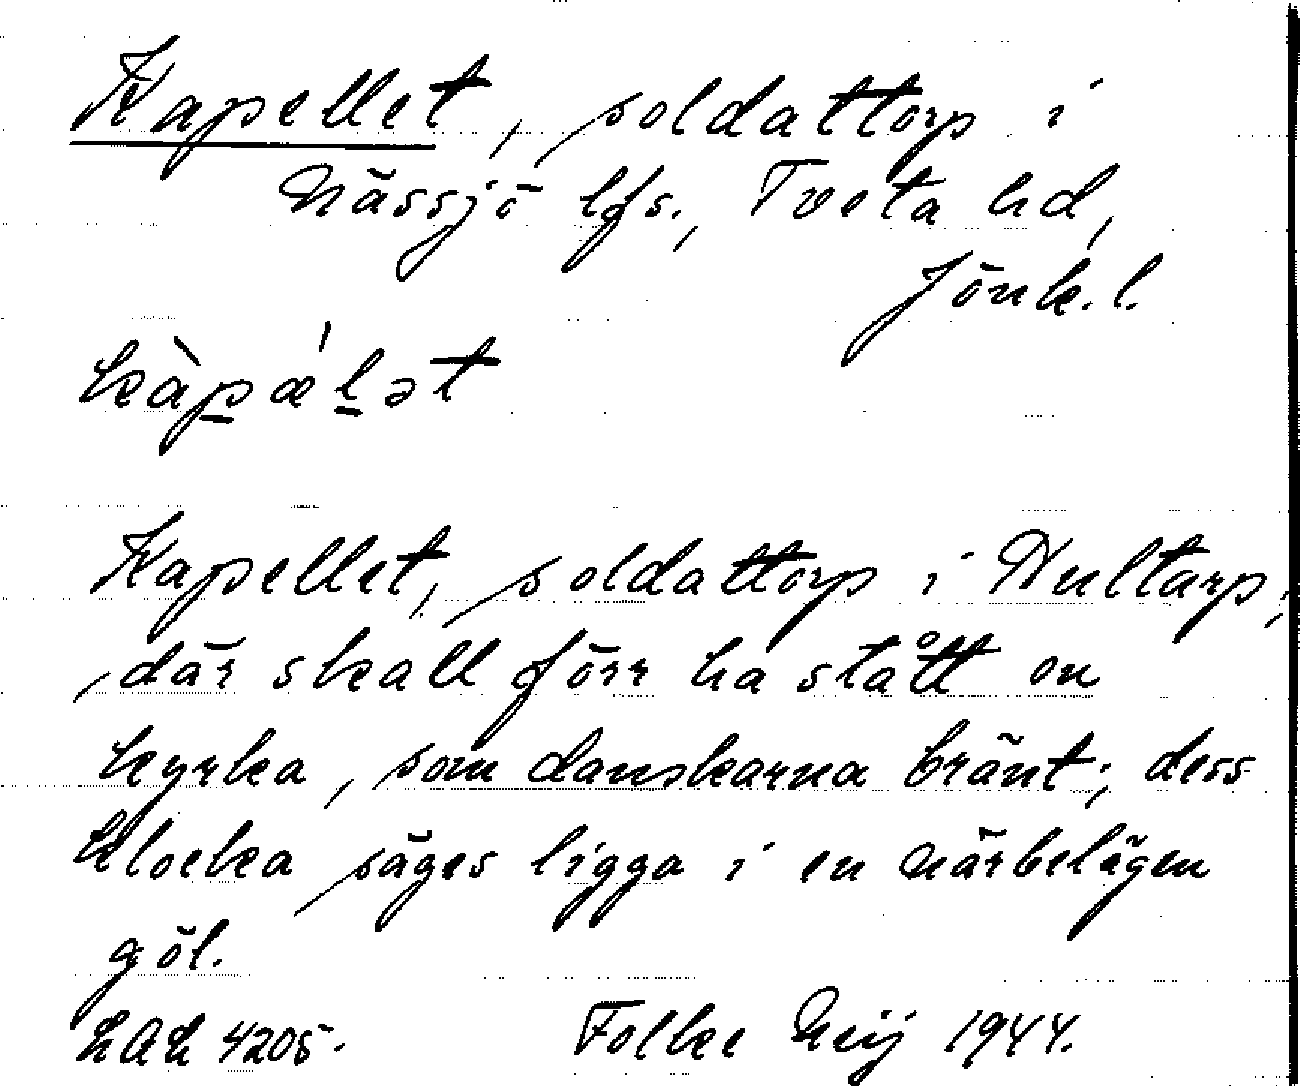 Kapellet, soldattorp i
Nässjö lfs., Tveta hd,
Jönk. l.
kàpǽlət
Kapellet, soldattorp i Hultarp,
där skall förr ha stått en
kyrka, som danskarna bränt; dess
klocka säges ligga i en närbelägen
göl.
LAL 4205. Folke Neij 1944.